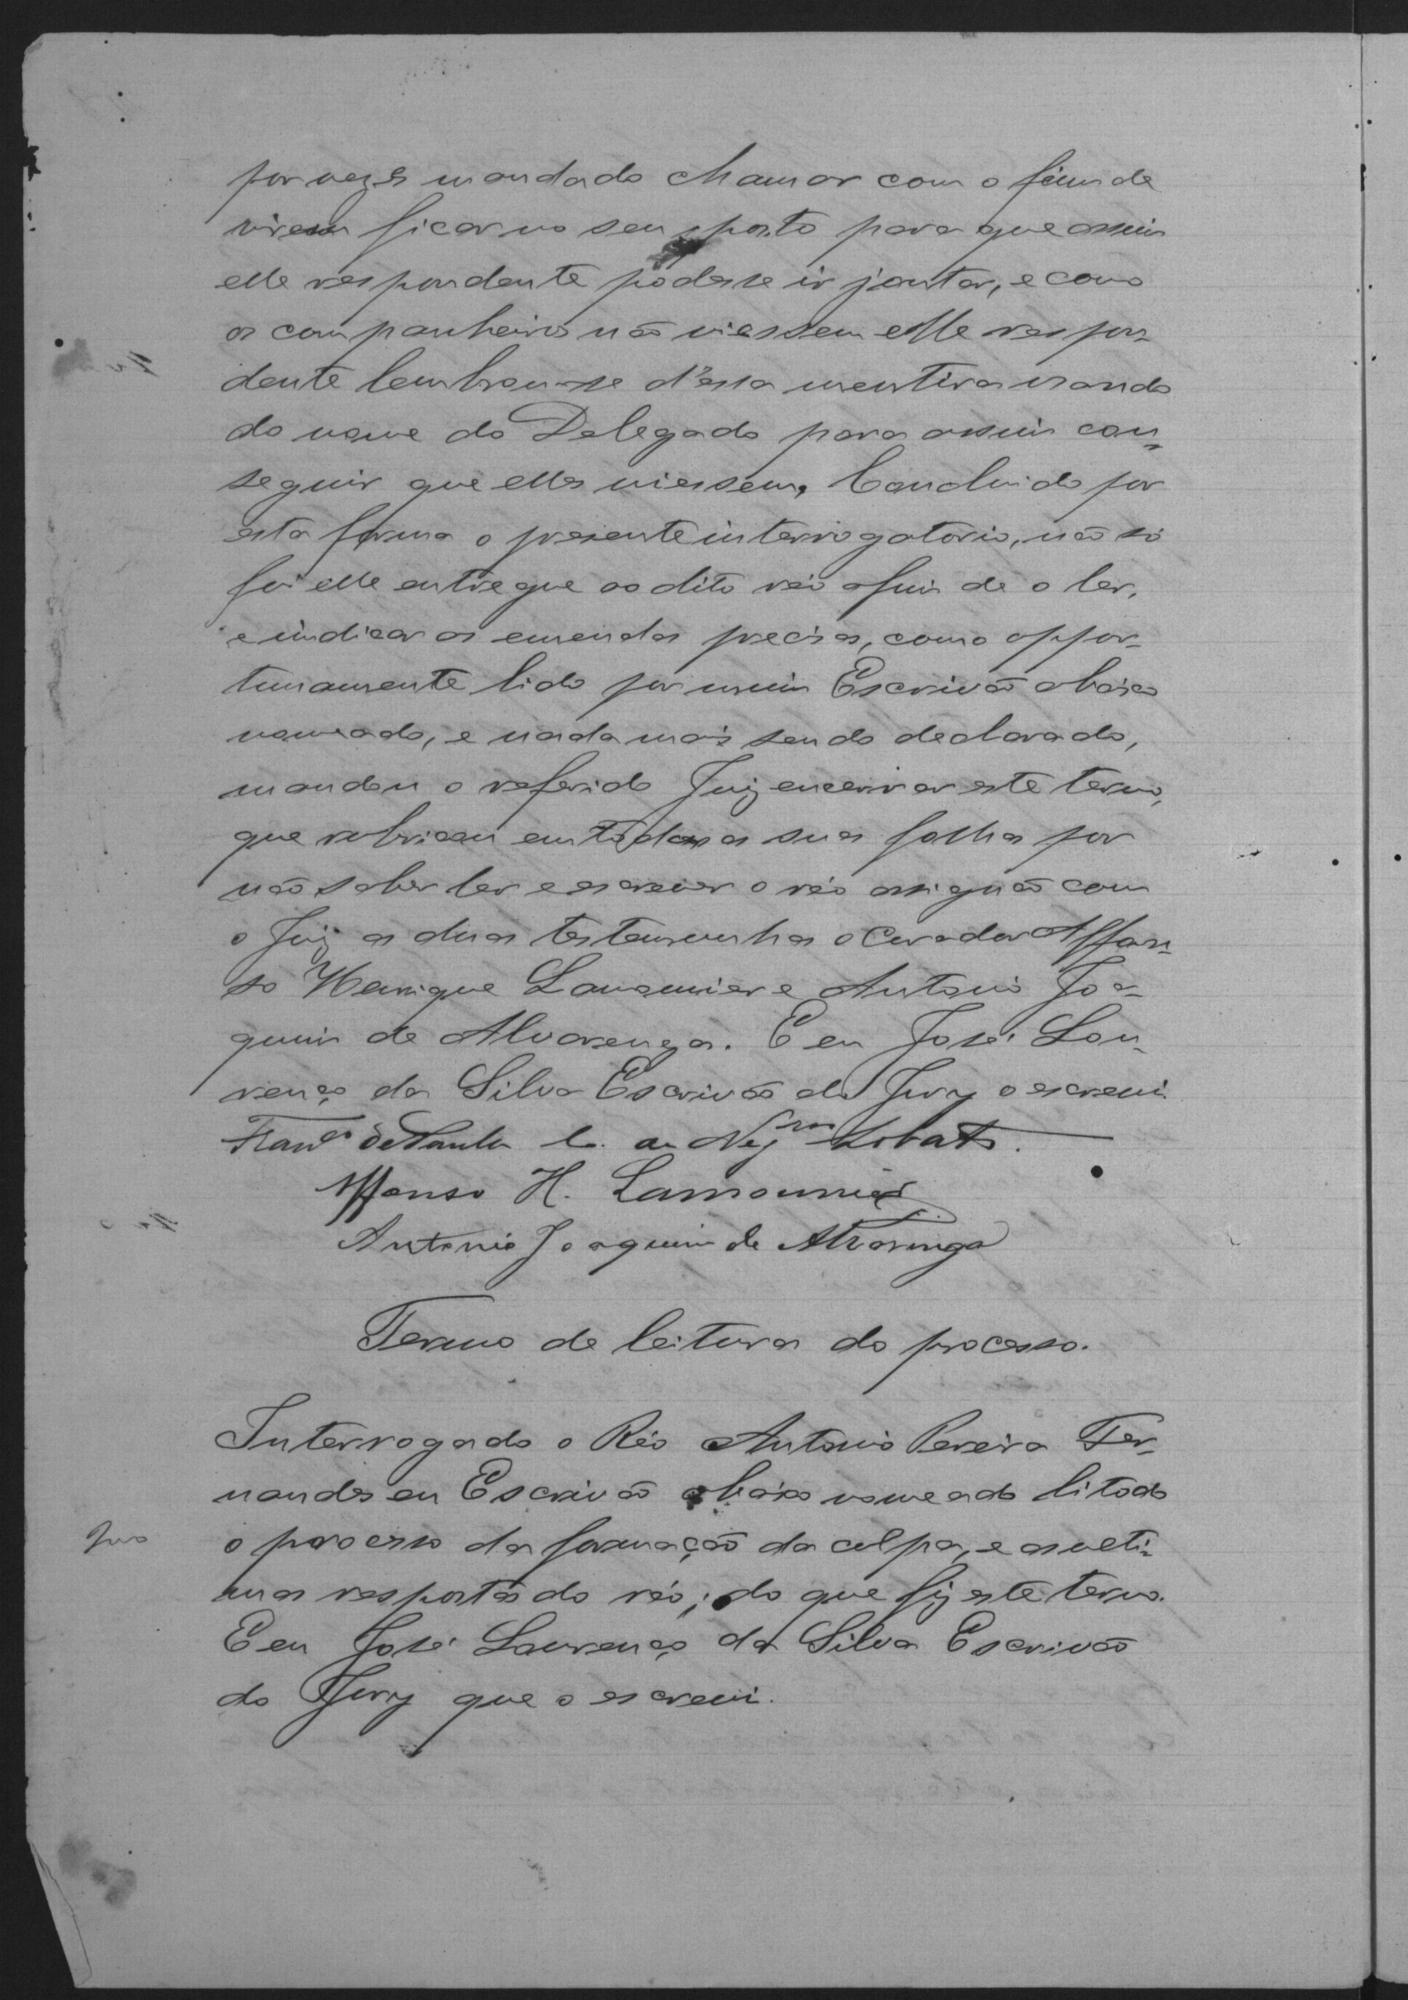 por vezes mandado chamar com o fim de
virem ficar no seu posto para que assim
elle respondente podesse ir jantar, e como
os companheiros não viessem elle respon-
dente lembrou-se d'essa mentira usando
do nome do Delegado para assim con-
seguir que elles viessem. Concluido por
esta forma o presente interrogatorio, não só
foi elle entregue ao dito réo afim de o ler,
e indicar as emendas precisas, como oppor-
tunamente lido por mim Escrivão abaixo
nomeado, e nada mais sendo declarado,
mandou o referido Juiz encerrar este termo,
que rubricou em todas as suas folhas por
não saber ler e escrever o réo assignão com
o Juiz as duas testemunhas o Curador Affon-
so Henrique Lamounier e Antonio Joa-
quim de Alvarenga. E eu José Lou-
renço da Silva Escrivão do Jury o escrevi
Franco de Paula C. a Negros Lobato.
Affonso H. Lamounier
Antonio Joaquim de Alvarenga
Termo de leitura do processo.
Interrogado o Réo Antonio Pereira Fer-
nandes eu Escrivão abaixo nomeado li todo
o processo da formação da culpa, e as ulti-
mas respostas do réo; do que fiz este termo.
E eu José Lourenço da Silva Escrivão
do Jury que o escrevi.